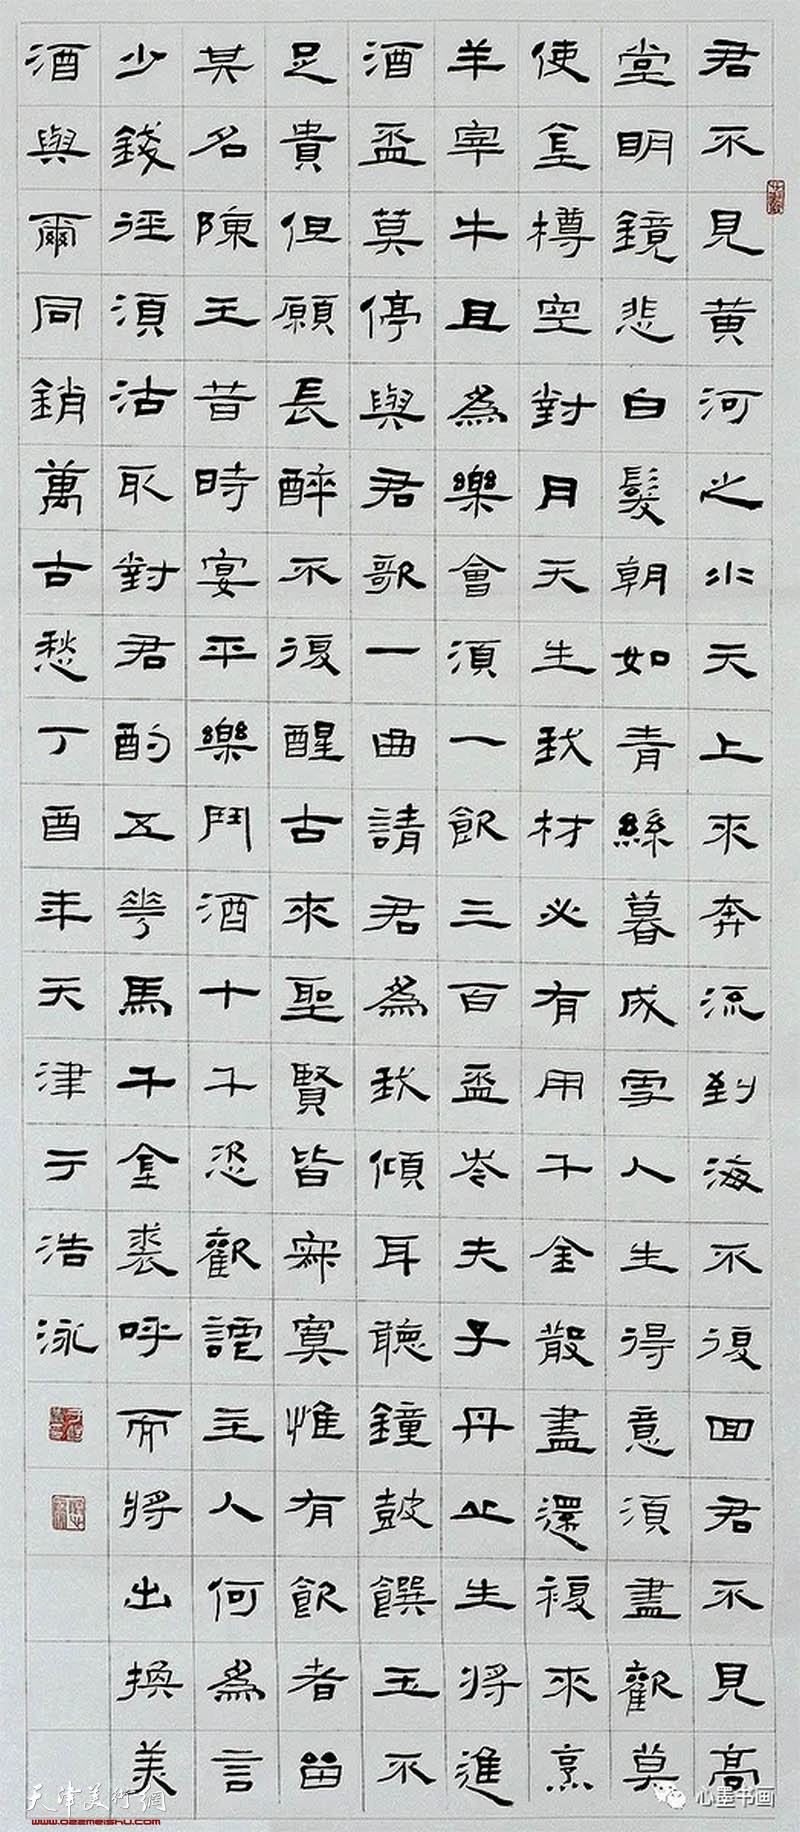 君不見黄河之水天上來奔流到海不復回君不見高
堂明鏡悲白髮朝如青絲暮成雪人生得意須盡歡莫
使金樽空對月天生我材必有用千金散盡還複來烹
羊宰牛且為樂會須一飲三百盃岑夫子丹丘生將進
酒盃莫停與君歌一曲請君為我傾耳聽鐘鼓饌玉不
足貴但願長醉不復醒古來聖賢皆寂寞惟有飲者留
其名陳王昔時宴平樂鬥酒十千恣歡謔主人何為言
少錢徑須沽取對君酌五花馬千金裘呼而將出換美
酒與爾同銷萬古愁丁酉年天津于浩泳
心墨书画
天津美術網
www.022meishu.com